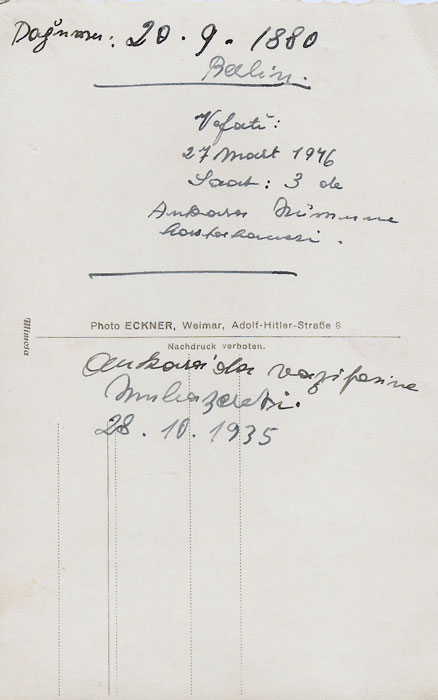 Doğumu: 20.9.1880
Berlin.
Vefatı:
27 Mart 1946
Saat: 3 de
Ankara Nümune
hastahanesi.
Mimosa
Photo ECKNER, Weimar, Adolf-Hitler-Straße 8
Nachdruck verboten.
Ankara'da vazifesine
28.10.1935